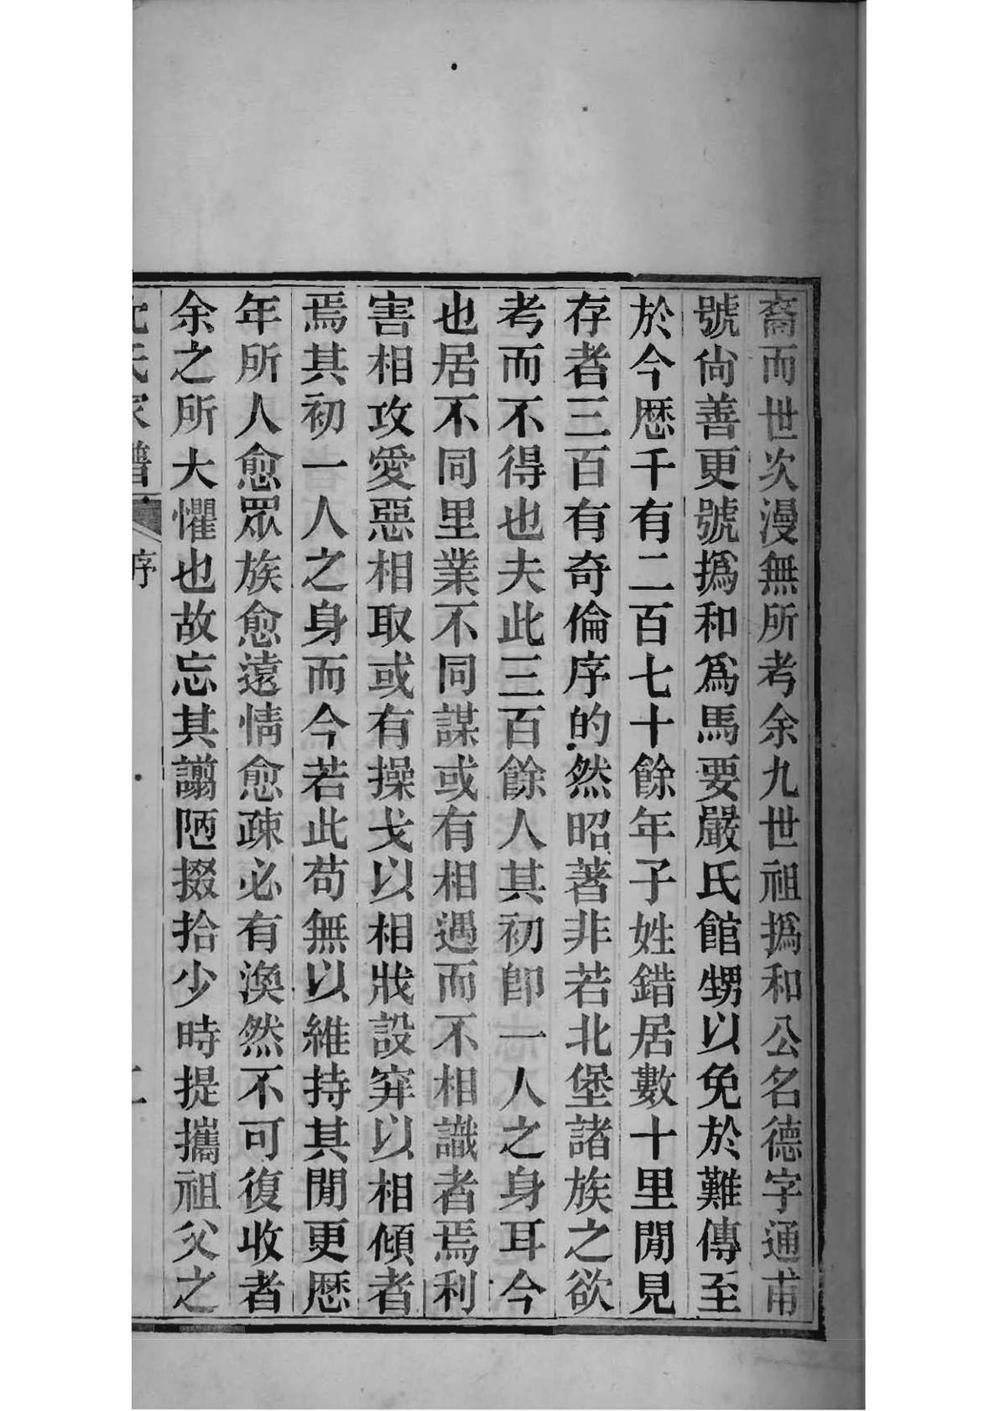 裔而世次漫無所考余九世祖撝和公名德字通甫
號尙善更號撝和爲馬要嚴氏館甥以免於難傳至
於今厯千有二百七十餘年子姓錯居數十里閒見
存者三百有奇倫序的然昭著非若北堡諸族之欲
考而不得也夫此三百餘人其初卽一人之身耳今
也居不同里業不同謀或有相遇而不相識者焉利
害相攻愛惡相取或有操戈以相戕設穽以相傾者
焉其初一人之身而今若此苟無以維持其閒更厯
年所人愈眾族愈遠情愈疎必有渙然不可復收者
余之所大懼也故忘其譾陋掇拾少時提攜祖父之
氏家譜 序